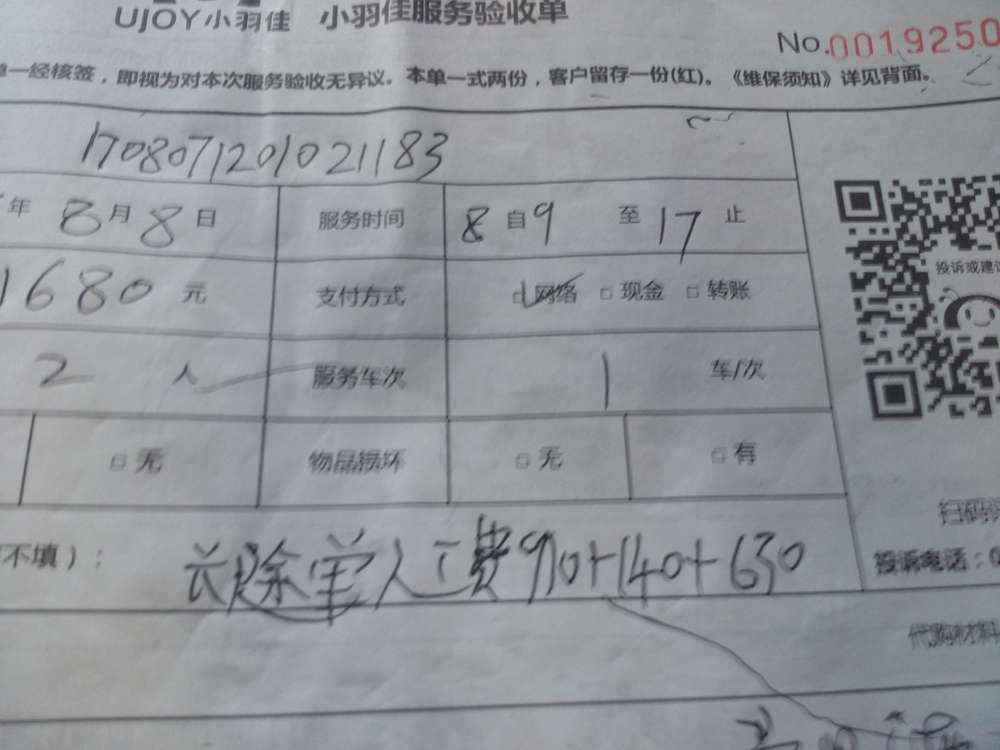 UJOY小羽佳 小羽佳服务验收单
No.0019250
一经核签，即视为对本次服务验收无异议。本单一式两份，客户留存一份(红)。《维保须知》详见背面。
1708071201021183
年 8月8日 服务时间 8 自9 至17止
1680 元 支付方式 网络 □现金 □转账
投诉或建议
2 人 服务车次 1 车/次
□无 物品损坏 □无 □有
扫码
不填）：
人工费910+140+630
投诉电话：0
代购材料